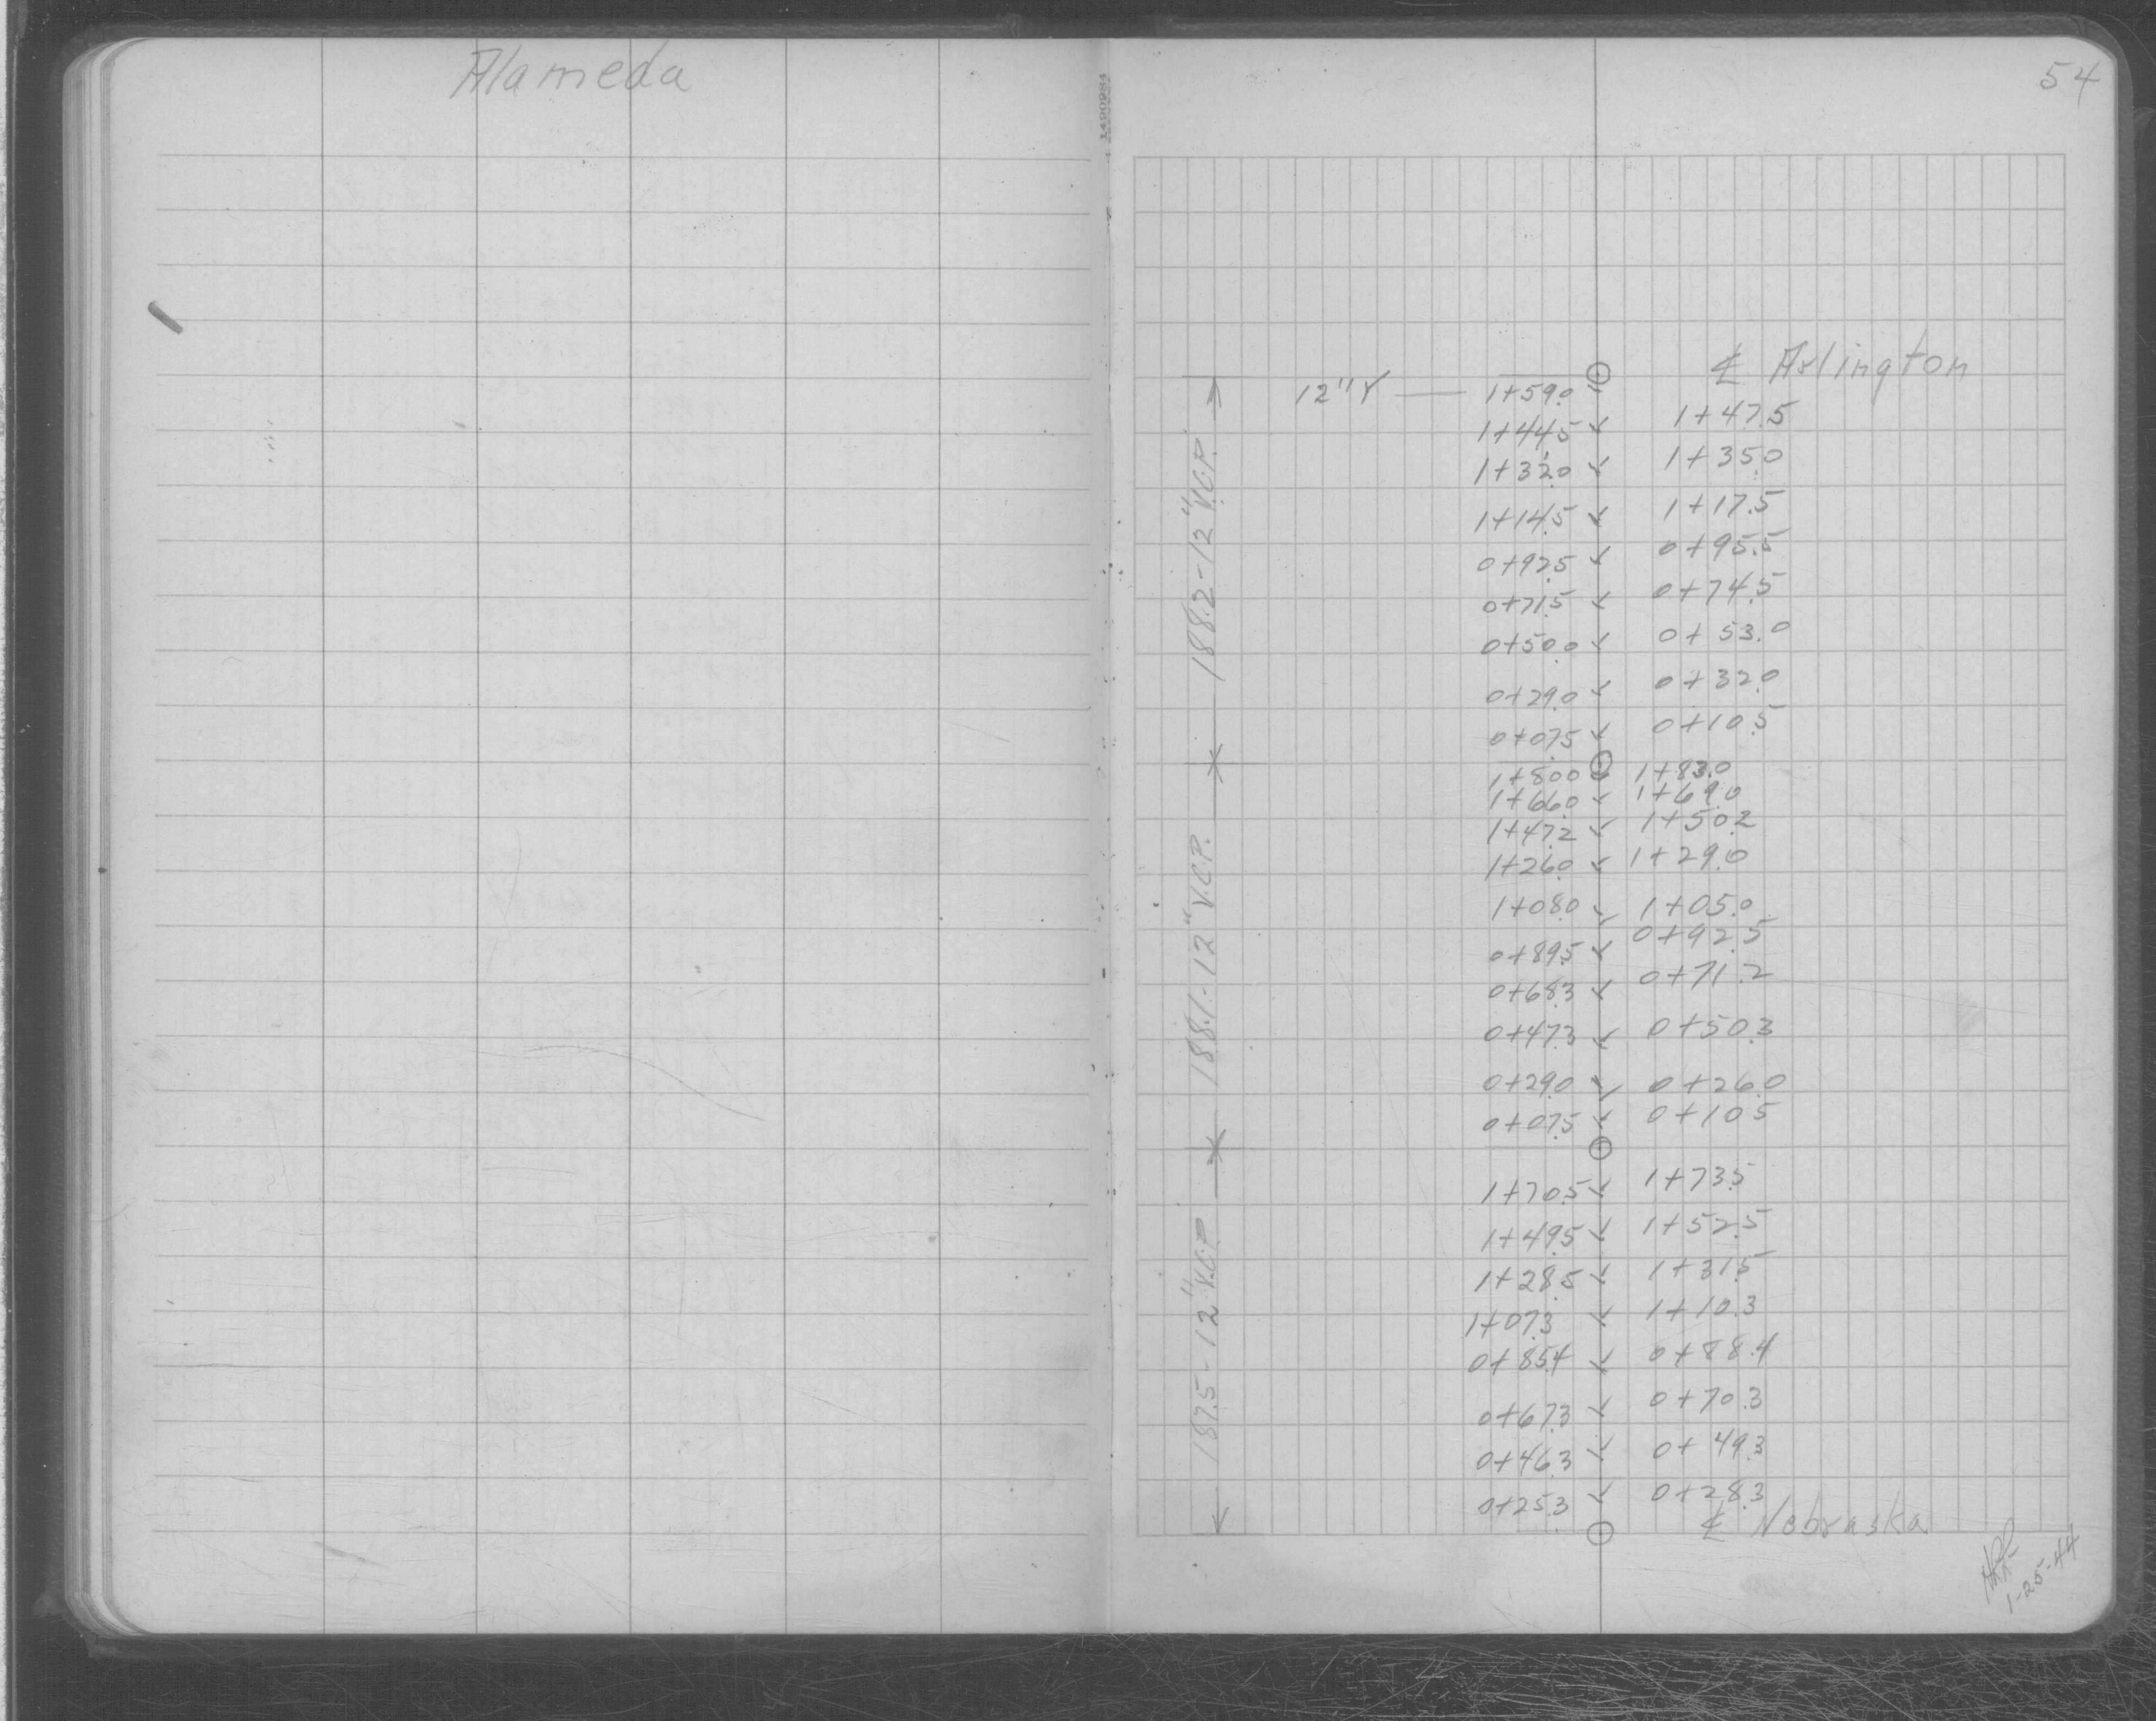 Alameda
54
1490984
℄ Arlington
12"Y — 1+59.0
1+44.5 1+47.5
1+32.0 1+35.0
1+14.5 1+17.5
0+92.5 0+95.5
0+71.5 0+74.5
0+50.0 0+53.0
0+29.0 0+32.0
0+07.5 0+10.5
188.2-12" V.C.P.
1+80.0 1+83.0
1+66.0 1+69.0
1+47.2 1+50.2
1+26.0 1+29.0
1+08.0 1+05.0
0+89.5 0+92.5
0+68.3 0+71.2
0+47.3 0+50.3
0+29.0 0+26.0
0+07.5 0+10.5
188.1-12" V.C.P.
1+70.5 1+73.5
1+49.5 1+52.5
1+28.5 1+31.5
1+07.3 1+10.3
0+85.4 0+88.4
0+67.3 0+70.3
0+46.3 0+49.3
0+25.3 0+28.3
187.5-12" V.C.P.
℄ Nebraska
1-25-44